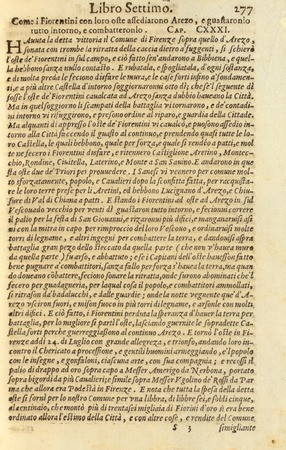 Libro Settimo. 277
Come i Fiorentini con loro oste assediarono Arezo, e guastaronlo
tutto intorno, e combattetonlo. Cap. CXXXI.
HAvuta la detta vittoria il Comune di Firenze sopra quello d'Arezo,
sonata con trombe la ritratta della caccia dietro a fuggenti, si schierò
l'oste de' Fiorentini in sul campo, e ciò fatto sen'andarono a Bibbiena, e quel-
la hebbono sanza nullo contasto. E rubatala, e spogliatala, d'ogni sostanza,
e di molta preda le feciono disfare le mura, e le case forti insino a' fondamen-
ti, e a più altre Castella d'intorno soggiornaronvi otto dì;
fosse l'oste de' Fiorentini cavalcata ad Arezo, sanza dubbio haveano la Città.
Ma in quel soggiorno li scampati della battaglia vi tornarono, e de' contadi-
ni intorno vi rifuggirono, e presono ordine al riparo, e guardia della Cittade.
Ma alquanti dì appresso l'oste de' Fiorentini vi venne, e puosono assedio in-
torno alla Città faccendo il guasto al continuo, prendendo quasi tutte le lo-
ro Castella, le quali hebbono, quale per forza, e quale si rendèo a patti, e mol-
te ne fecero i Fiorentini disfare, e ritennero Castiglione Aretino, Montec-
chio, Rondine, Civitella, Laterino, e Monte a San Savino. E andarono in que-
sta oste due de' Priori per provvedere. I Sanesi vi vennero per comune mol-
to sforzatamente, popolo, e Cavalieri dopo la sconfitta fatta, per racquista-
re le loro terre prese per li Aretini, ed hebbono Lucignano d'Arezo, e Chiu-
sure di Val di Chiana a patti. E stando i Fiorentini ad oste ad Arezo in sul
Vescovado vecchio per venti dì guastaronvi tutto intorno, e feciono correre
il palio per la festa di San Giovanni, e rizaronvi più difici, e manganarvisi asi-
ni con la mitra in capo per rimproccio del loro Vescovo, e ordinaronvi molte
torri di legname, e altri ingegni per combattere la terra, e dandovi aspra
battaglia gran pezo dello steccato da quella parte (che non v'haveva mura
da quella parte) fu arso, e abbattuto, e se i Capitani dell'oste havessono fatto
bene pugnare a' combattitori, sanza fallo per forza haveano la terra, ma quan-
do doveano combattere, feciono sonare la ritratta, onde furono abominati che'l
fecero per guadagneria, per la qual cosa il popolo, e combattitori ammollati,
si ritrassono da' badalucchi, e dalle guardie; onde la notte vegnente que' d'A-
rezo uscirono fuori, e misono fuoco in più torri di legname, e arsonle con molti
altri difici. E ciò fatto, i Fiorentini perduta la speranza d'havere la terra per
battaglia, per lo migliore si partì l'oste, lasciando guernite le sopradette Ca-
stella forti perche guerreggiassono al continuo Arezo. E tornò l'oste in Fi-
renze addì 24. di Luglio con grande allegreza, e trionfo, andando loro in-
contro il Chericato a processione, e gentili huomini armeggiando, e'l popolo
con le insegne, e gonfaloni, ciascuna arte, con sua compagnia, e recossi il
palio di drappo ad oro sopra capo a Messer Amerigo da Nerbona, portato
sopra bigordi da più Cavalieri; e simile sopra Messer Ugolino de' Rossi da Par-
ma che allora era Podestà in Firenze. E nota che tutta la spesa della detta
oste si fornì per lo nostro Comune per una libbra, di libre sei, e soldi cinque,
al centinaio, che montò più di trentasei migliaia di Fiorini d'oro sì era bene
ordinato allora l'estimo della Città, e con altre cose, e rendite del Comune
S 3 simigliante